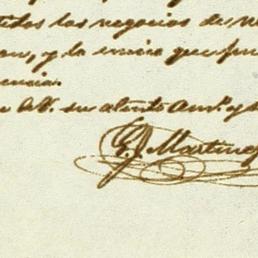 todos los negocios de
y la única que
encia.
de V. su atento Am.º y
G. Martinez